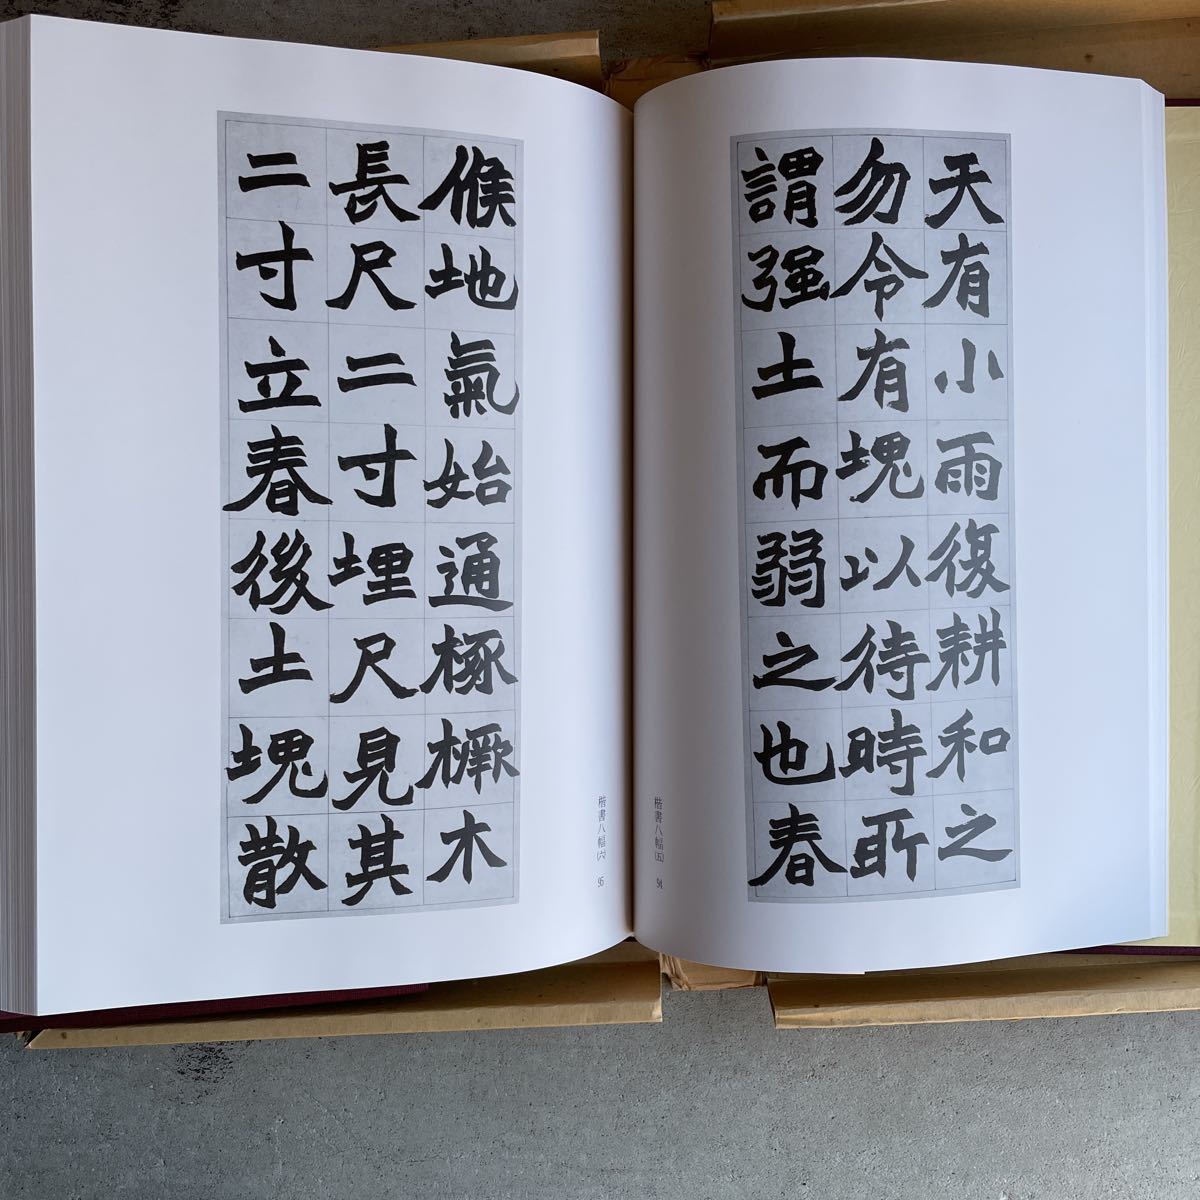 天有小雨復耕和之
勿令有塊以待時所
謂强土而弱之也春
楷書八幅(五) 94
候地氣始通椓橛木
長尺二寸埋尺見其
二寸立春後土塊散
楷書八幅(六) 95